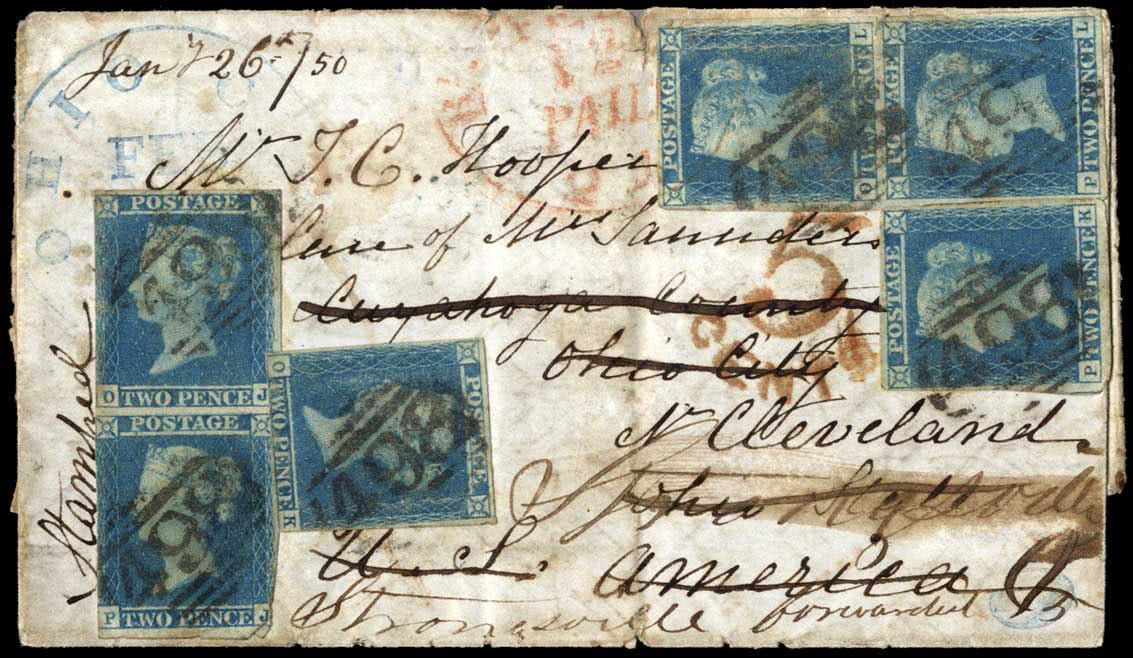 Jany 26th/50
OHIO
PAID
Mr T. C. Hooper
Care of Mrs Saunders
Cuyahoga County
Ohio City
Nr Cleveland.
Ohio
U. S. America
Strongsville forwarded 5
Stamped
POSTAGE
O TWO PENCE J
498
POSTAGE
P TWO PENCE J
498
POSTAGE
O TWO PENCE K
498
POSTAGE
O TWO PENCE L
498
POSTAGE
P TWO PENCE L
498
POSTAGE
P TWO PENCE K
498